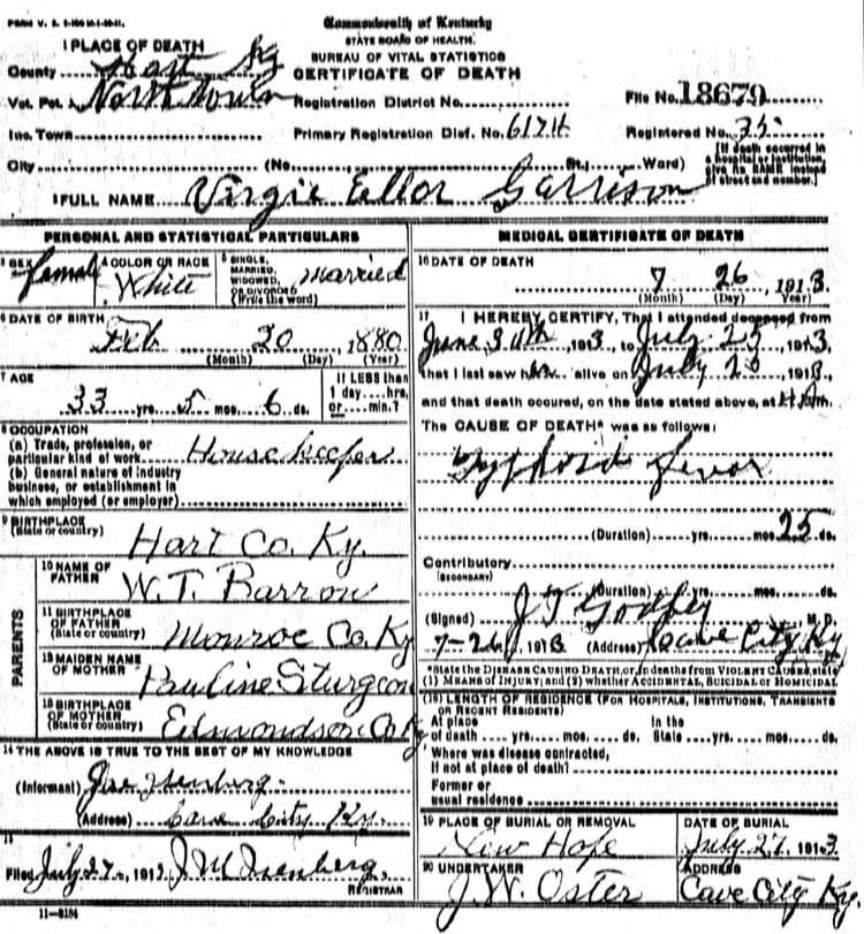 Commonwealth of Kentucky
STATE BOARD OF HEALTH.
BUREAU OF VITAL STATISTICS
CERTIFICATE OF DEATH
1 PLACE OF DEATH
County Hart Ky
Vot. Pct. North Town
Registration District No.
File No. 18679
Inc. Town
Primary Registration Dist. No. 6174
Registered No. 35
City (No. St.; Ward)
[If death occurred in
a hospital or institution,
give its NAME instead
of street and number.]
2 FULL NAME Virgie Ellor Garrison
PERSONAL AND STATISTICAL PARTICULARS
3 SEX female
4 COLOR OR RACE White
5 SINGLE, MARRIED, WIDOWED, OR DIVORCED (Write the word) married
6 DATE OF BIRTH
Feb 20 1880
(Month) (Day) (Year)
7 AGE
33 yrs. 5 mos. 6 ds.
If LESS than
1 day.... hrs.
or.... min.?
8 OCCUPATION
(a) Trade, profession, or
particular kind of work House keeper
(b) General nature of industry
business, or establishment in
which employed (or employer)
9 BIRTHPLACE
(State or country) Hart Co. Ky.
PARENTS
10 NAME OF
FATHER W.T. Barrow
11 BIRTHPLACE
OF FATHER
(State or country) Monroe Co. Ky
12 MAIDEN NAME
OF MOTHER Pauline Sturgeon
13 BIRTHPLACE
OF MOTHER
(State or country) Edmondson Co Ky
14 THE ABOVE IS TRUE TO THE BEST OF MY KNOWLEDGE
(Informant) Isenberg
(Address) Cave City Ky.
15
Filed July 27, 1913 J M Isenberg,
REGISTRAR
11-8184
MEDICAL CERTIFICATE OF DEATH
16 DATE OF DEATH
7 26, 1913
(Month) (Day) (Year)
17 I HEREBY CERTIFY, That I attended deceased from
June 30th, 1913, to July 25, 1913,
that I last saw her alive on July 25, 1913,
and that death occured, on the date stated above, at m.
The CAUSE OF DEATH* was as follows:
Typhoid fever
(Duration) yrs. mos. 25 ds.
Contributory
(SECONDARY)
(Duration) yrs. mos. ds.
(Signed) J T Godfrey M. D.
7-26, 1913 (Address) Cave City Ky
*State the DISEASE CAUSING DEATH, or, in deaths from VIOLENT CAUSES, state
(1) MEANS OF INJURY; and (2) whether ACCIDENTAL, SUICIDAL or HOMICIDAL
(18) LENGTH OF RESIDENCE (FOR HOSPITALS, INSTITUTIONS, TRANSIENTS
OR RECENT RESIDENTS)
At place In the
of death .... yrs. .... mos. .... ds. State .... yrs. .... mos. .... ds.
Where was disease contracted,
If not at place of death?
Former or
usual residence
19 PLACE OF BURIAL OR REMOVAL
New Hope
DATE OF BURIAL
July 27, 1913
20 UNDERTAKER
J.W. Oster
ADDRESS
Cave City Ky.